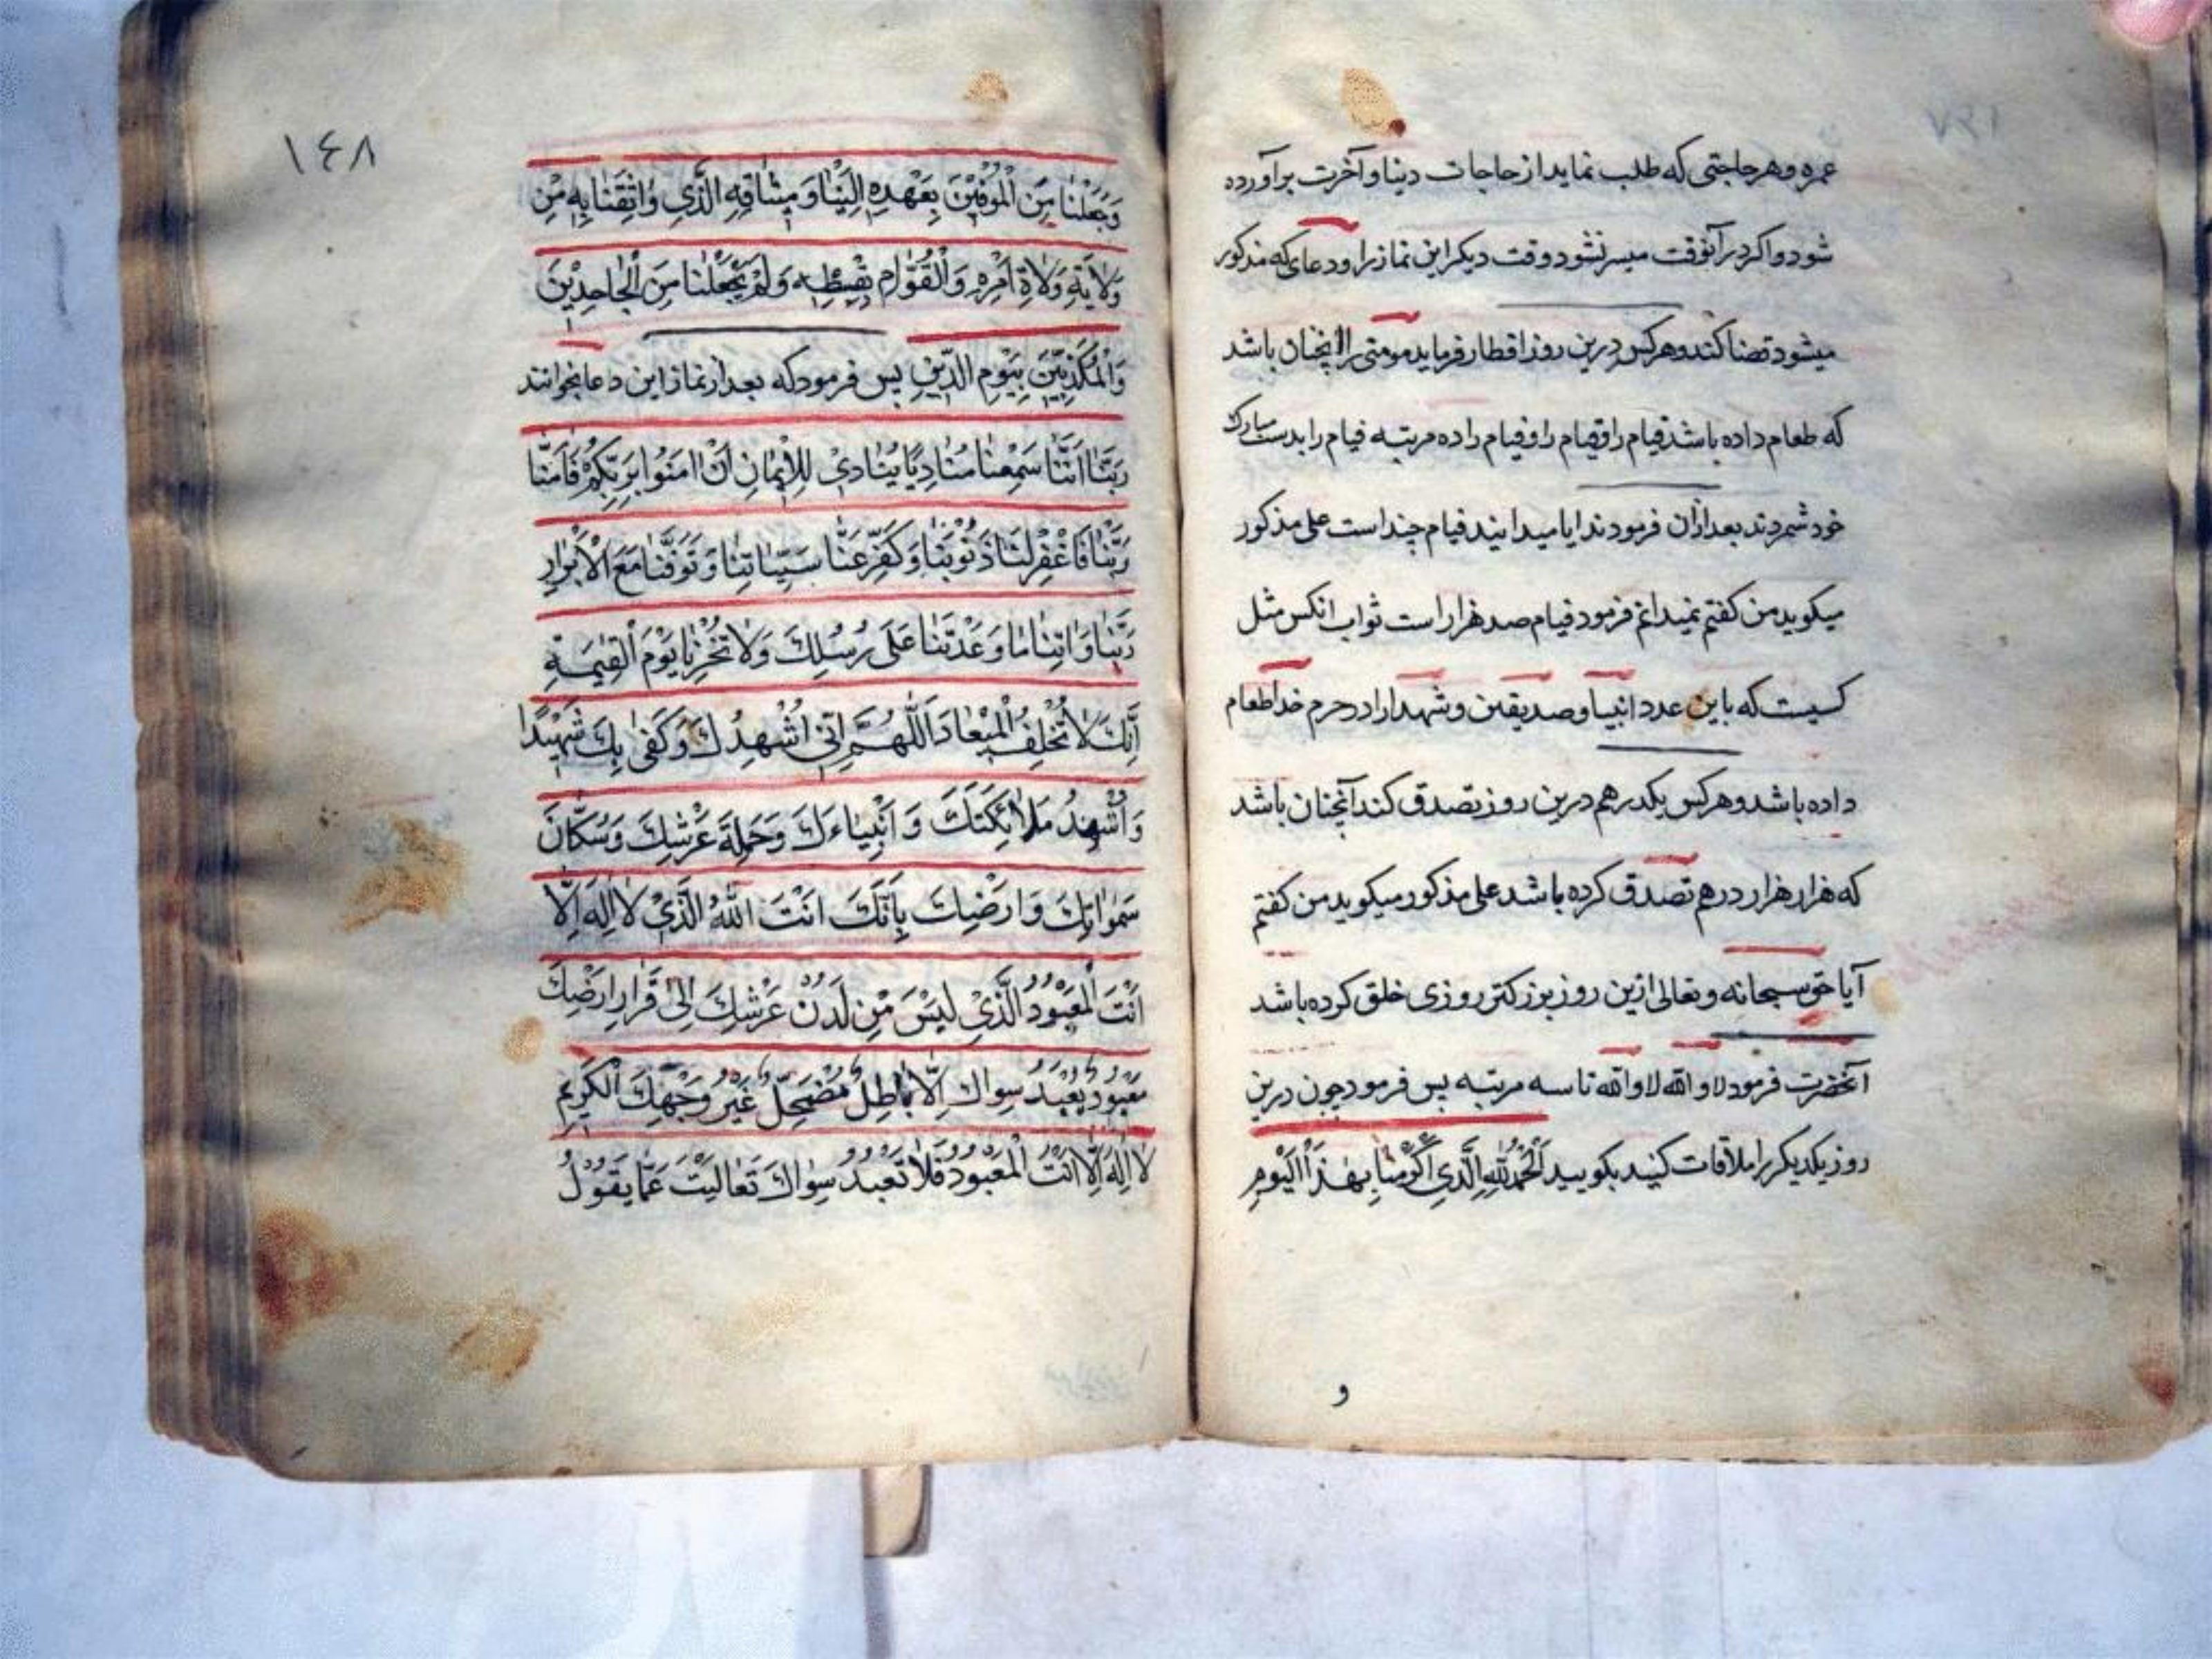 عمره وهر حاجتی که طلب نماید از حاجات دینا وآخرت برآورده
شود واکر در آنوقت میسر نشود وقت دیکر این نماز را ودعای که مذکور
میشود قضا کند وهر کس درین روز افطار فرماید مومنی را آنچنان باشد
که طعام داده باشد فیام را وفیام را وفیام را ده مرتبه فیام را بدست مبارک
خود شمردند بعد ازان فرمودند ایا میدانید فیام چند است علی مذکور
میکوید من کفتم نمیدانم فرمود فیام صد هزار است ثواب انکس مثل
کسیت که باین عدد انبیا وصدیقین وشهدا را در حرم خدا طعام
داده باشد وهر کس یکدرهم درین روز تصدق کند آنچنان باشد
که هزار هزار درهم تصدق کرده باشد علی مذکور میکوید من کفتم
آیا حق سبحانه وتعالی ازین روز بزرکتر روزی خلق کرده باشد
آنحضرت فرمود لا والله لا والله تا سه مرتبه پس فرمود چون درین
روز یکدیکر را ملاقات کنید بکویید اَلْحَمْدُ لِلّٰهِ الَّذِی اَکْرَمَنَا بِهٰذَا الْیَوْمِ
و
١٤٨
وَجَعَلَنَا مِنَ الْمُوفِيْنَ بِعَهْدِهِ اِلَيْنَا وَ مِيثَاقِهِ الَّذِي وَاثَقَنَا بِهِ مِنْ
وَلَايَةِ وُلَاةِ اَمْرِهِ وَالْقُوَّامِ بِقِسْطِهِ وَلَمْ يَجْعَلْنَا مِنَ الْجَاحِدِيْنَ
وَالْمُكَذِّبِيْنَ بِيَوْمِ الدِّيْنِ پس فرمود که بعد از نماز این دعا بخوانند
رَبَّنَا اِنَّنَا سَمِعْنَا مُنَادِيًا يُنَادِيْ لِلْاِيْمَانِ اَنْ اٰمَنُوا بِرَبِّكُمْ فَاٰمَنَّا
رَبَّنَا فَاغْفِرْ لَنَا ذُنُوْبَنَا وَ كَفِّرْ عَنَّا سَيِّئَاتِنَا وَ تَوَفَّنَا مَعَ الْاَبْرَارِ
رَبَّنَا وَ اٰتِنَا مَا وَعَدْتَنَا عَلٰى رُسُلِكَ وَلَا تُخْزِنَا يَوْمَ الْقِيٰمَةِ
اِنَّكَ لَا تُخْلِفُ الْمِيْعَادَ اَللّٰهُمَّ اِنِّي اُشْهِدُكَ وَكَفٰى بِكَ شَهِيْدًا
وَ اُشْهِدُ مَلَائِكَتَكَ وَ اَنْبِيَاءَكَ وَ حَمَلَةَ عَرْشِكَ وَ سُكَّانَ
سَمٰوَاتِكَ وَ اَرْضِكَ بِاَنَّكَ اَنْتَ اللّٰهُ الَّذِيْ لَا اِلٰهَ اِلَّا
اَنْتَ الْمَعْبُوْدُ الَّذِيْ لَيْسَ مِنْ لَدُنْ عَرْشِكَ اِلٰى قَرَارِ اَرْضِكَ
مَعْبُوْدٌ يُعْبَدُ سِوَاكَ اِلَّا بَاطِلٌ مُضْمَحِلٌّ غَيْرُ وَجْهِكَ الْكَرِيْمِ
لَا اِلٰهَ اِلَّا اَنْتَ الْمَعْبُوْدُ فَلَا نَعْبُدُ سِوَاكَ تَعَالَيْتَ عَمَّا يَقُوْلُ